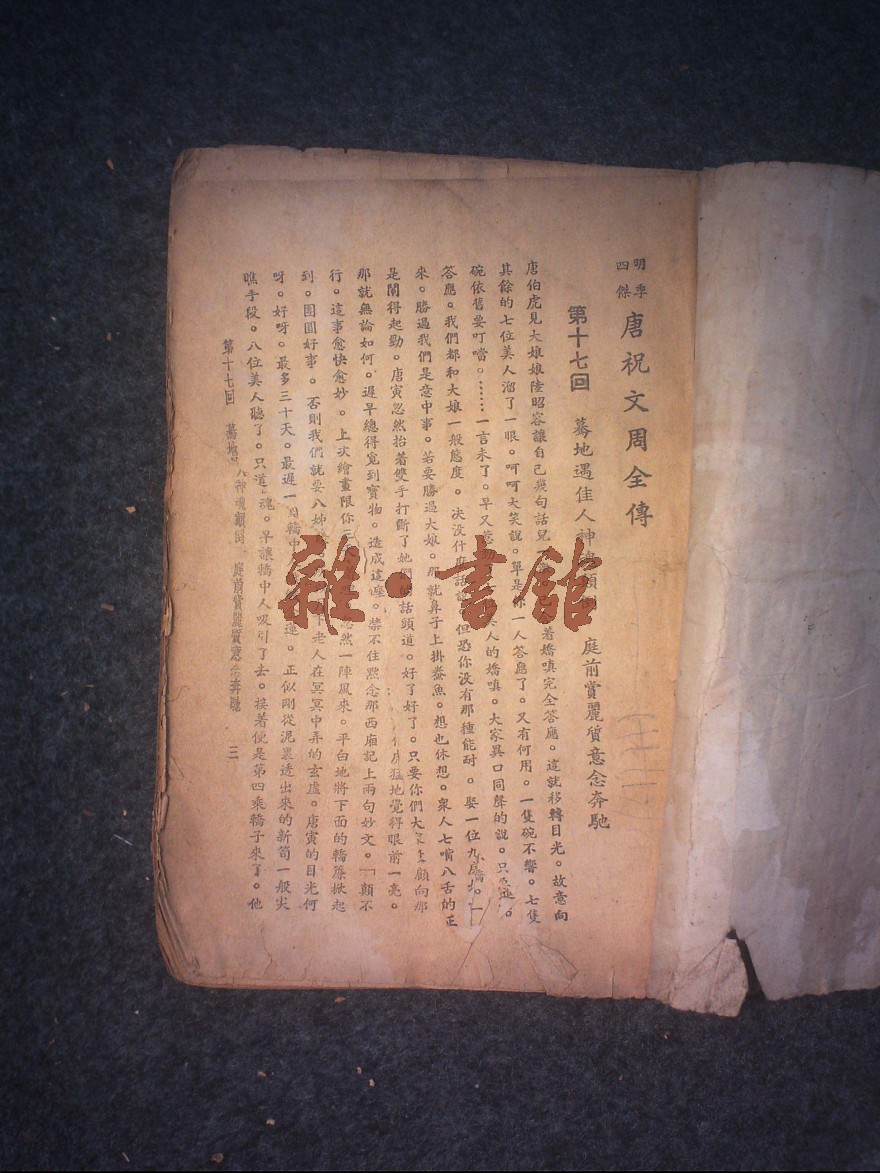 明季四傑
唐祝文周全傳
第十七回　驀地遇佳人神魂顛　庭前賞麗質意念奔馳
唐伯虎見大娘娘陸昭容讓自己幾句話兒　着嬌嗔完全答應。這就移轉目光。故意向
其餘的七位美人溜了一眼。呵呵大笑說。單是你一人答應了。又有何用。一隻碗不響。七隻
碗依舊要叮噹。……一言未了。早又惹　美人的嬌嗔。大家異口同聲的說。只
答應。我們都和大娘一般態度。决没什麽話說　但恐你没有那種能耐。娶一位九
來。勝過我們是意中事。若要勝過大娘。那就鼻子上掛鯗魚。想也休想。衆人七嘴八舌的正
是鬧得起勁。唐寅忽然抬着雙手打斷了她們　話頭道。好了好了。只要你們大
那就無論如何。遲早總得覓到寶物。造成這座
行。這事愈快愈妙。上次繪畫限你三
到。團圓好事。否則我們就要八姊
呀。好呀。最多三十天。最遲一
瞧手段。八位美人聽了。只道
顧向那
猛地覺得眼前一亮。
禁不住默念那西廂記上兩句妙文。「顛不
忽然一陣風來。平白地將下面的轎簾掀起
下老人在冥冥中弄的玄虛。唐寅的目光何
轎中　正似剛從泥裏透出來的新筍一般尖
魂。早讓轎中人吸引了去。接着便是第四乘轎子來了。他
第十七回　驀地　神魂顛倒　庭前賞麗質意念奔馳　三
雜·書館